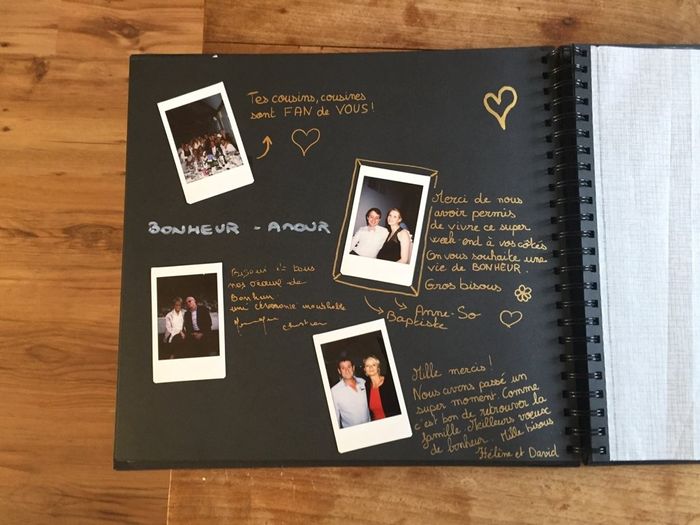 Tes cousins, cousines
sont FAN de VOUS !
BONHEUR - AMOUR
Merci de nous
avoir permis
de vivre ce super
week-end à vos côtés
On vous souhaite une
vie de BONHEUR.
Gros bisous
Anne-So
Baptiste
Bisous à tous
nos vœux de
Bonheur
une cérémonie
Christian
Mille mercis !
Nous avons passé un
super moment. Comme
c'est bon de retrouver la
famille. Meilleurs voeux
de bonheur. Mille bisous
Hélène et David